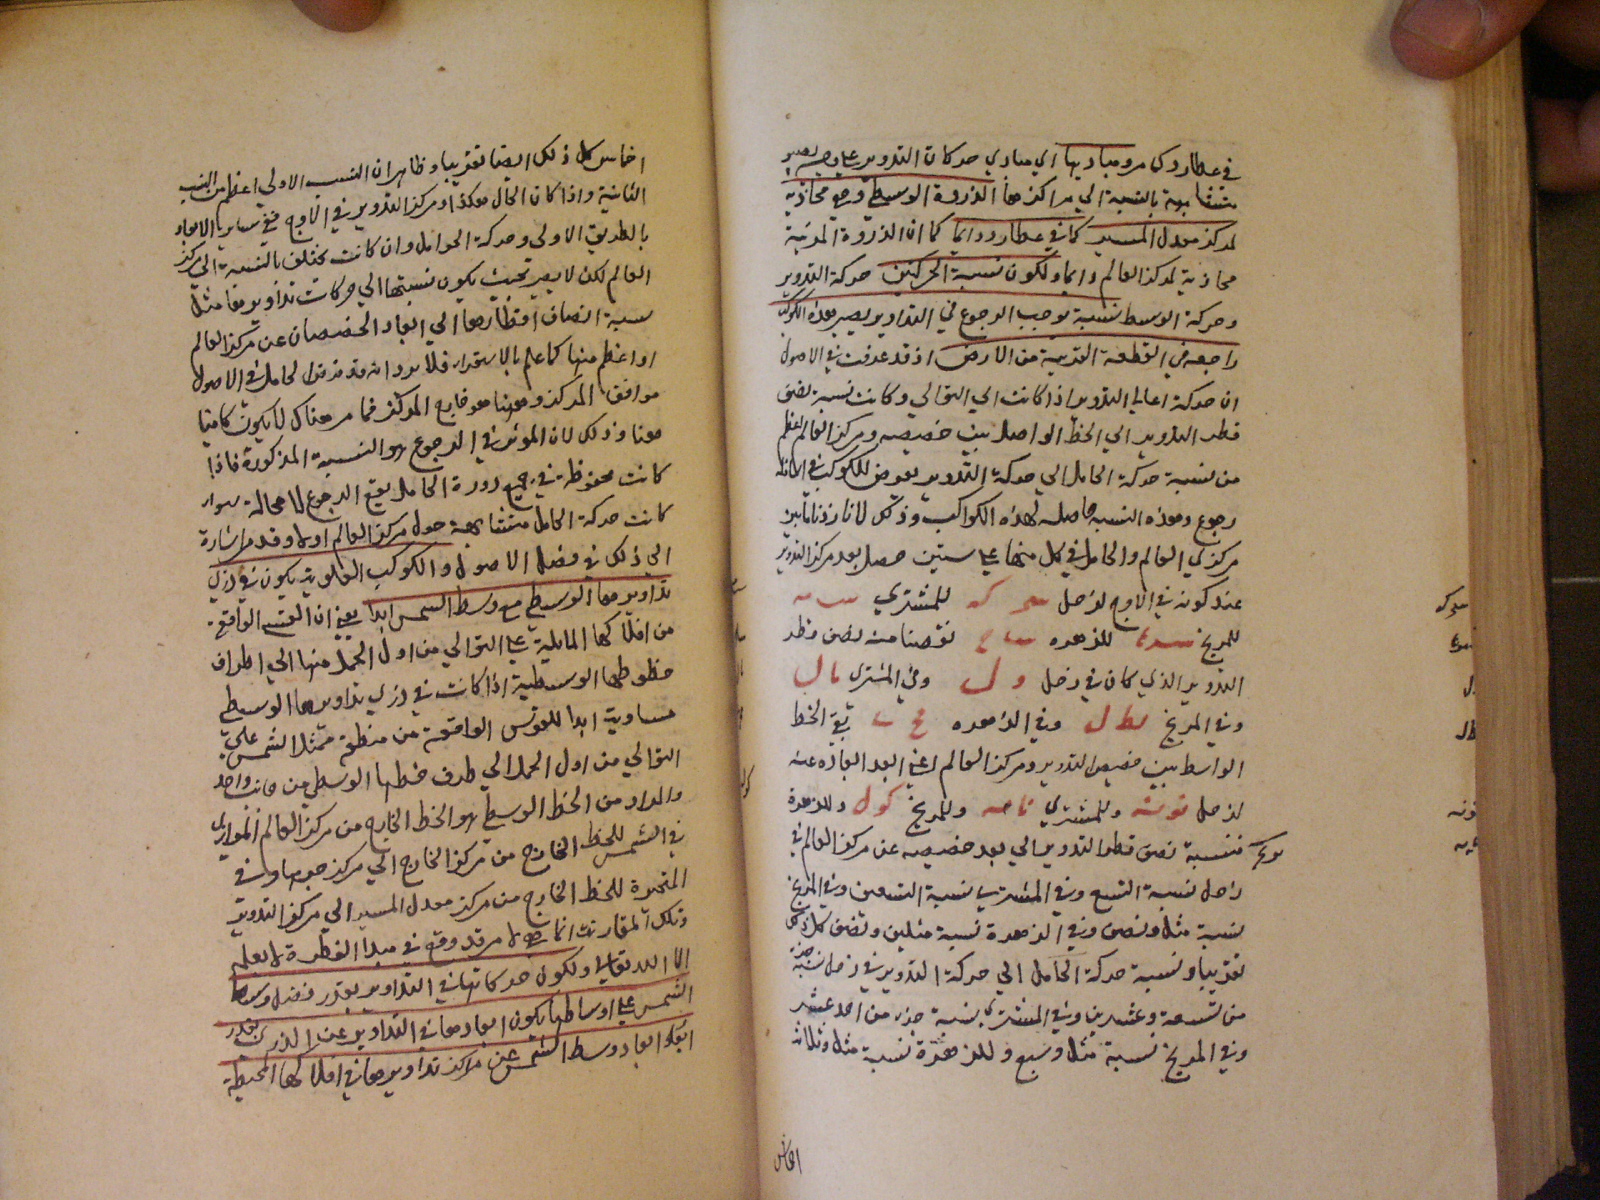 في عطارد كـ مر ومباديها اي مبادي حركات التدوير على وجه يصير
متشابهة بالنسبة الي مراكزها الذروة الوسطي وهي محاذية
لمركز معدل المسير كما في عطارد دايما كما ان الذروة المرئية
محاذية لمركز العالم دايما ولكون نسبة الحركتين حركة التدوير
وحركة الوسط نسبة توجب الرجوع في التداوير يصير هذه الكواكب
راجعة في القطعة القريبة من الارض اذ قد عرفت في الاصول
ان حركة اعالي التدوير اذا كانت الي التوالي وكانت نسبة نصف
قطر التدوير الي الخط الواصل بين حضيضه ومركز العالم اعظم
من نسبة حركة الحامل الي حركة التدوير يعرض للكوكب في
رجوع وهذه النسبة حاصلة لهذه الكواكب وذلك لانا زدنا ما بين
مركزي العالم والحامل في كل منها على ستين حصل بعد مركز التدوير
عند كونه في الاوج لزحل للمشتري
للمريخ للزهره نقصنا منه نصف قطر
التدوير الذي كان في زحل و ل وفي المشتري يا ل
وفي المريخ لط ل وفي الزهره بقي الخط
الواسط بين حضيض التدوير ومركز العالم اعني البعد
لزحل وللمشتري وللمريخ وللزهرة
فنسبة نصف قطر التدوير الي بعد حضيضه عن مركز العالم في
زحل نسبة التسع وفي المشتري نسبة التسعين وفي المريخ
نسبة مثل ونصف وفي الزهرة نسبة مثلين ونصف كل ذلك
تقريبا ونسبة حركة الحامل الي حركة التدوير في زحل نسبة جزء
من تسعة وعشرين وفي المشتري نسبة جزء من احد عشر
وفي المريخ نسبة مثل وسبع وللزهرة نسبة مثل وثلاثة
اخماس
اخماس كل ذلك ايضا تقريبا وظاهر ان النسب الاولي اعظم من النسب
الثانية واذا كان الحال هكذا ومركز التدوير في الاوج ففي ساير الابعاد
بالطريق الاولي وحركة الحوامل وان كانت تختلف بالنسبة الي مركز
العالم لكن لا يصير بحيث يكون نسبتها الي حركات تداويرها مثل
نسبة انصاف اقطارها الي ابعاد الحضيضات عن مركز العالم
او اعظم منها كما علم بالاستقراء فلا يرد انه قد فرض الحامل في الاصول
موافق المركز وههنا هو خارج المركز فما مر هناك لا يكون كافيا
ههنا وذلك لان الموثر في الرجوع هو النسبة المذكورة فاذا
كانت محفوظة في جميع دورة الحامل يقع الرجوع لا محالة سواء
كانت حركة الحامل متشابهة حول مركز العالم اولا وقد مر اشارة
الي ذلك في فصل الاصول والكوكب العلوية يكون في ذري
تداويرها الوسطي مع وسط الشمس ابدا يعني ان القسي الواقعة
من افلاكها المايلة على التوالي من اول الحمل منها الي اطراف
خطوطها الوسطية اذا كانت في ذري تداويرها الوسطي
مساوية ابدا للقوس الواقعة من منطقة ممثل الشمس علي
التوالي من اول الحمل الي طرف خطها الوسطي من جانب واحد
والمراد من الخط الوسطي هو الخط الخارج من مركز العالم الموازي
في الشمس للخط الخارج من مركز الخارج الي مركز جرمها وفي
المتحيرة للخط الخارج من مركز معدل المسير الي مركز التدوير
وتلك المقارنة انما هي لامر قد وقع في مبدأ الفطرة لا يعلمه
الا الله تعالي ولكون حركاتها في التداوير بقدر فضل وسط
الشمس على اوساطها يكون ابعادها في التداوير عن الذري بقدر
ابعاد وسط الشمس عن مراكز تداويرها في افلاكها المحيطة